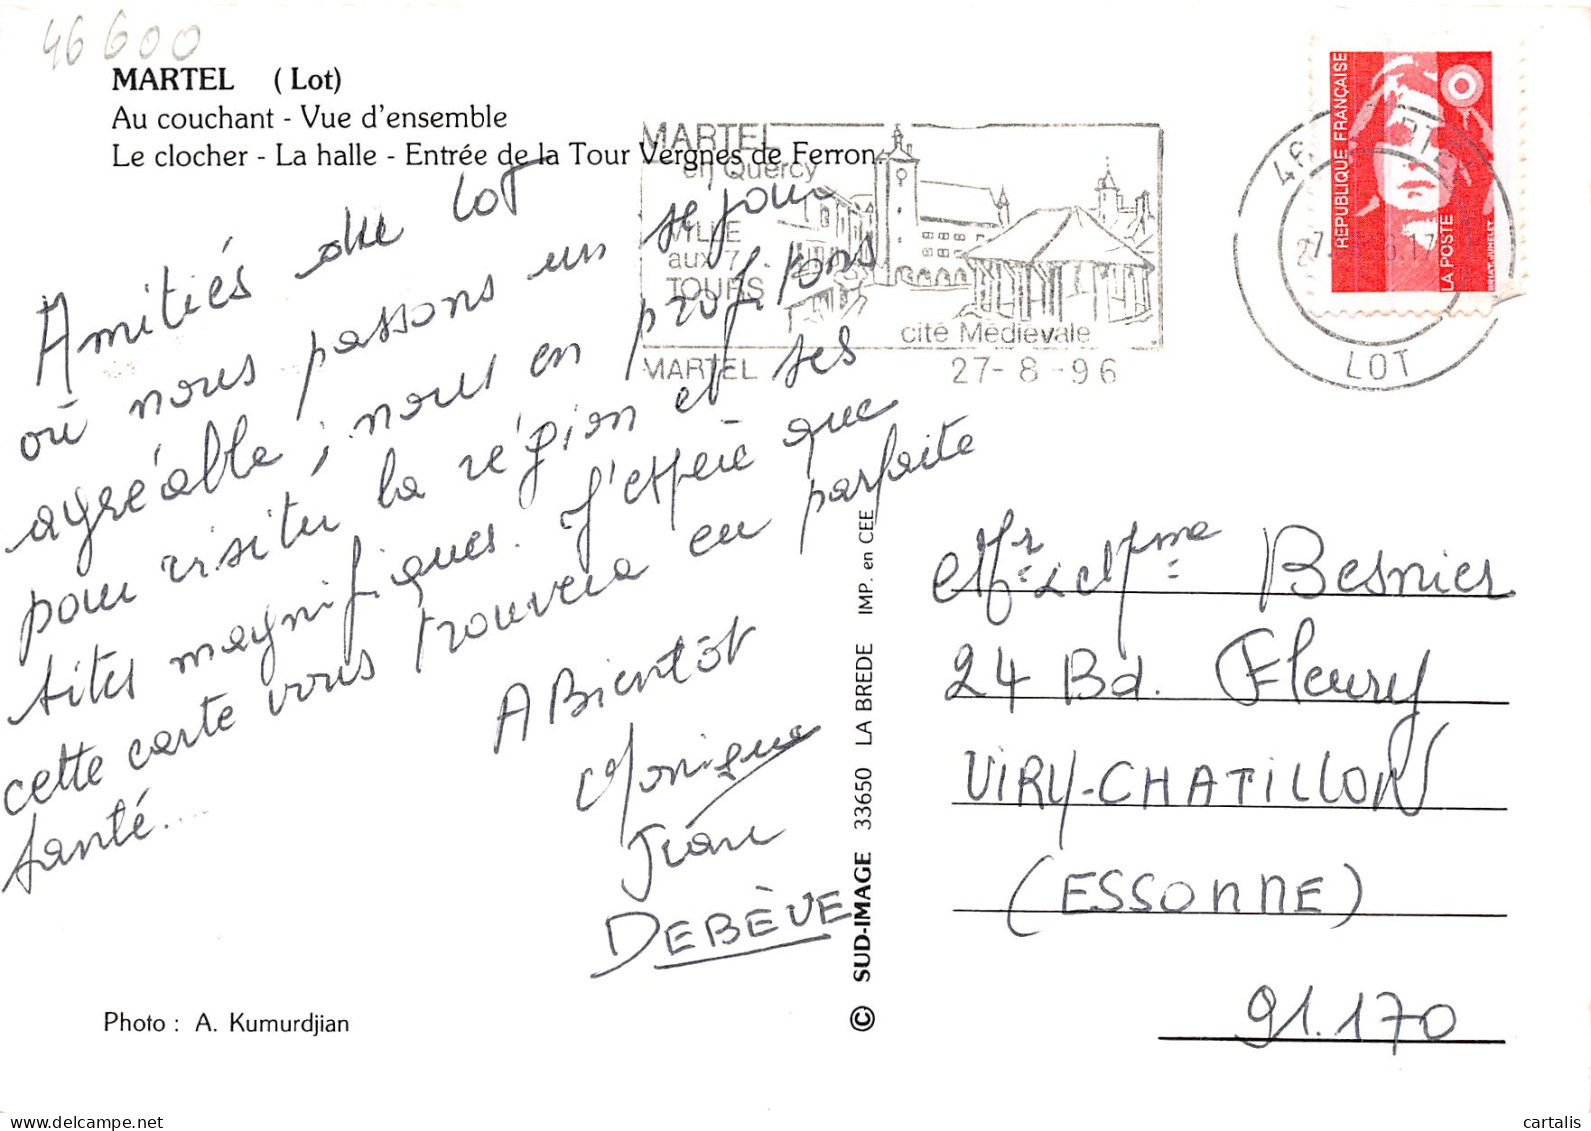 46600
MARTEL (Lot)
Au couchant - Vue d'ensemble
Le clocher - La halle - Entrée de la Tour Vergnes de Ferron.
MARTEL
en Quercy
VILLE
aux 7
TOURS
cité Médiévale
MARTEL 27-8-96
46
LOT
REPUBLIQUE FRANÇAISE
LA POSTE
Amitiés du Lot
où nous passons un séjour
agréable ; nous en profitons
pour visiter la région et ses
sites magnifiques. J'espère que
cette carte vous trouvera en parfaite
santé....
A Bientôt
Monique
Jean
DEBÈVE
© SUD-IMAGE 33650 LA BREDE IMP. en CEE
Mr & Mme Besnier
24 Bd. Fleury
VIRY-CHATILLON
(ESSONNE)
91.170
Photo : A. Kumurdjian
delcampe.net
cartalis